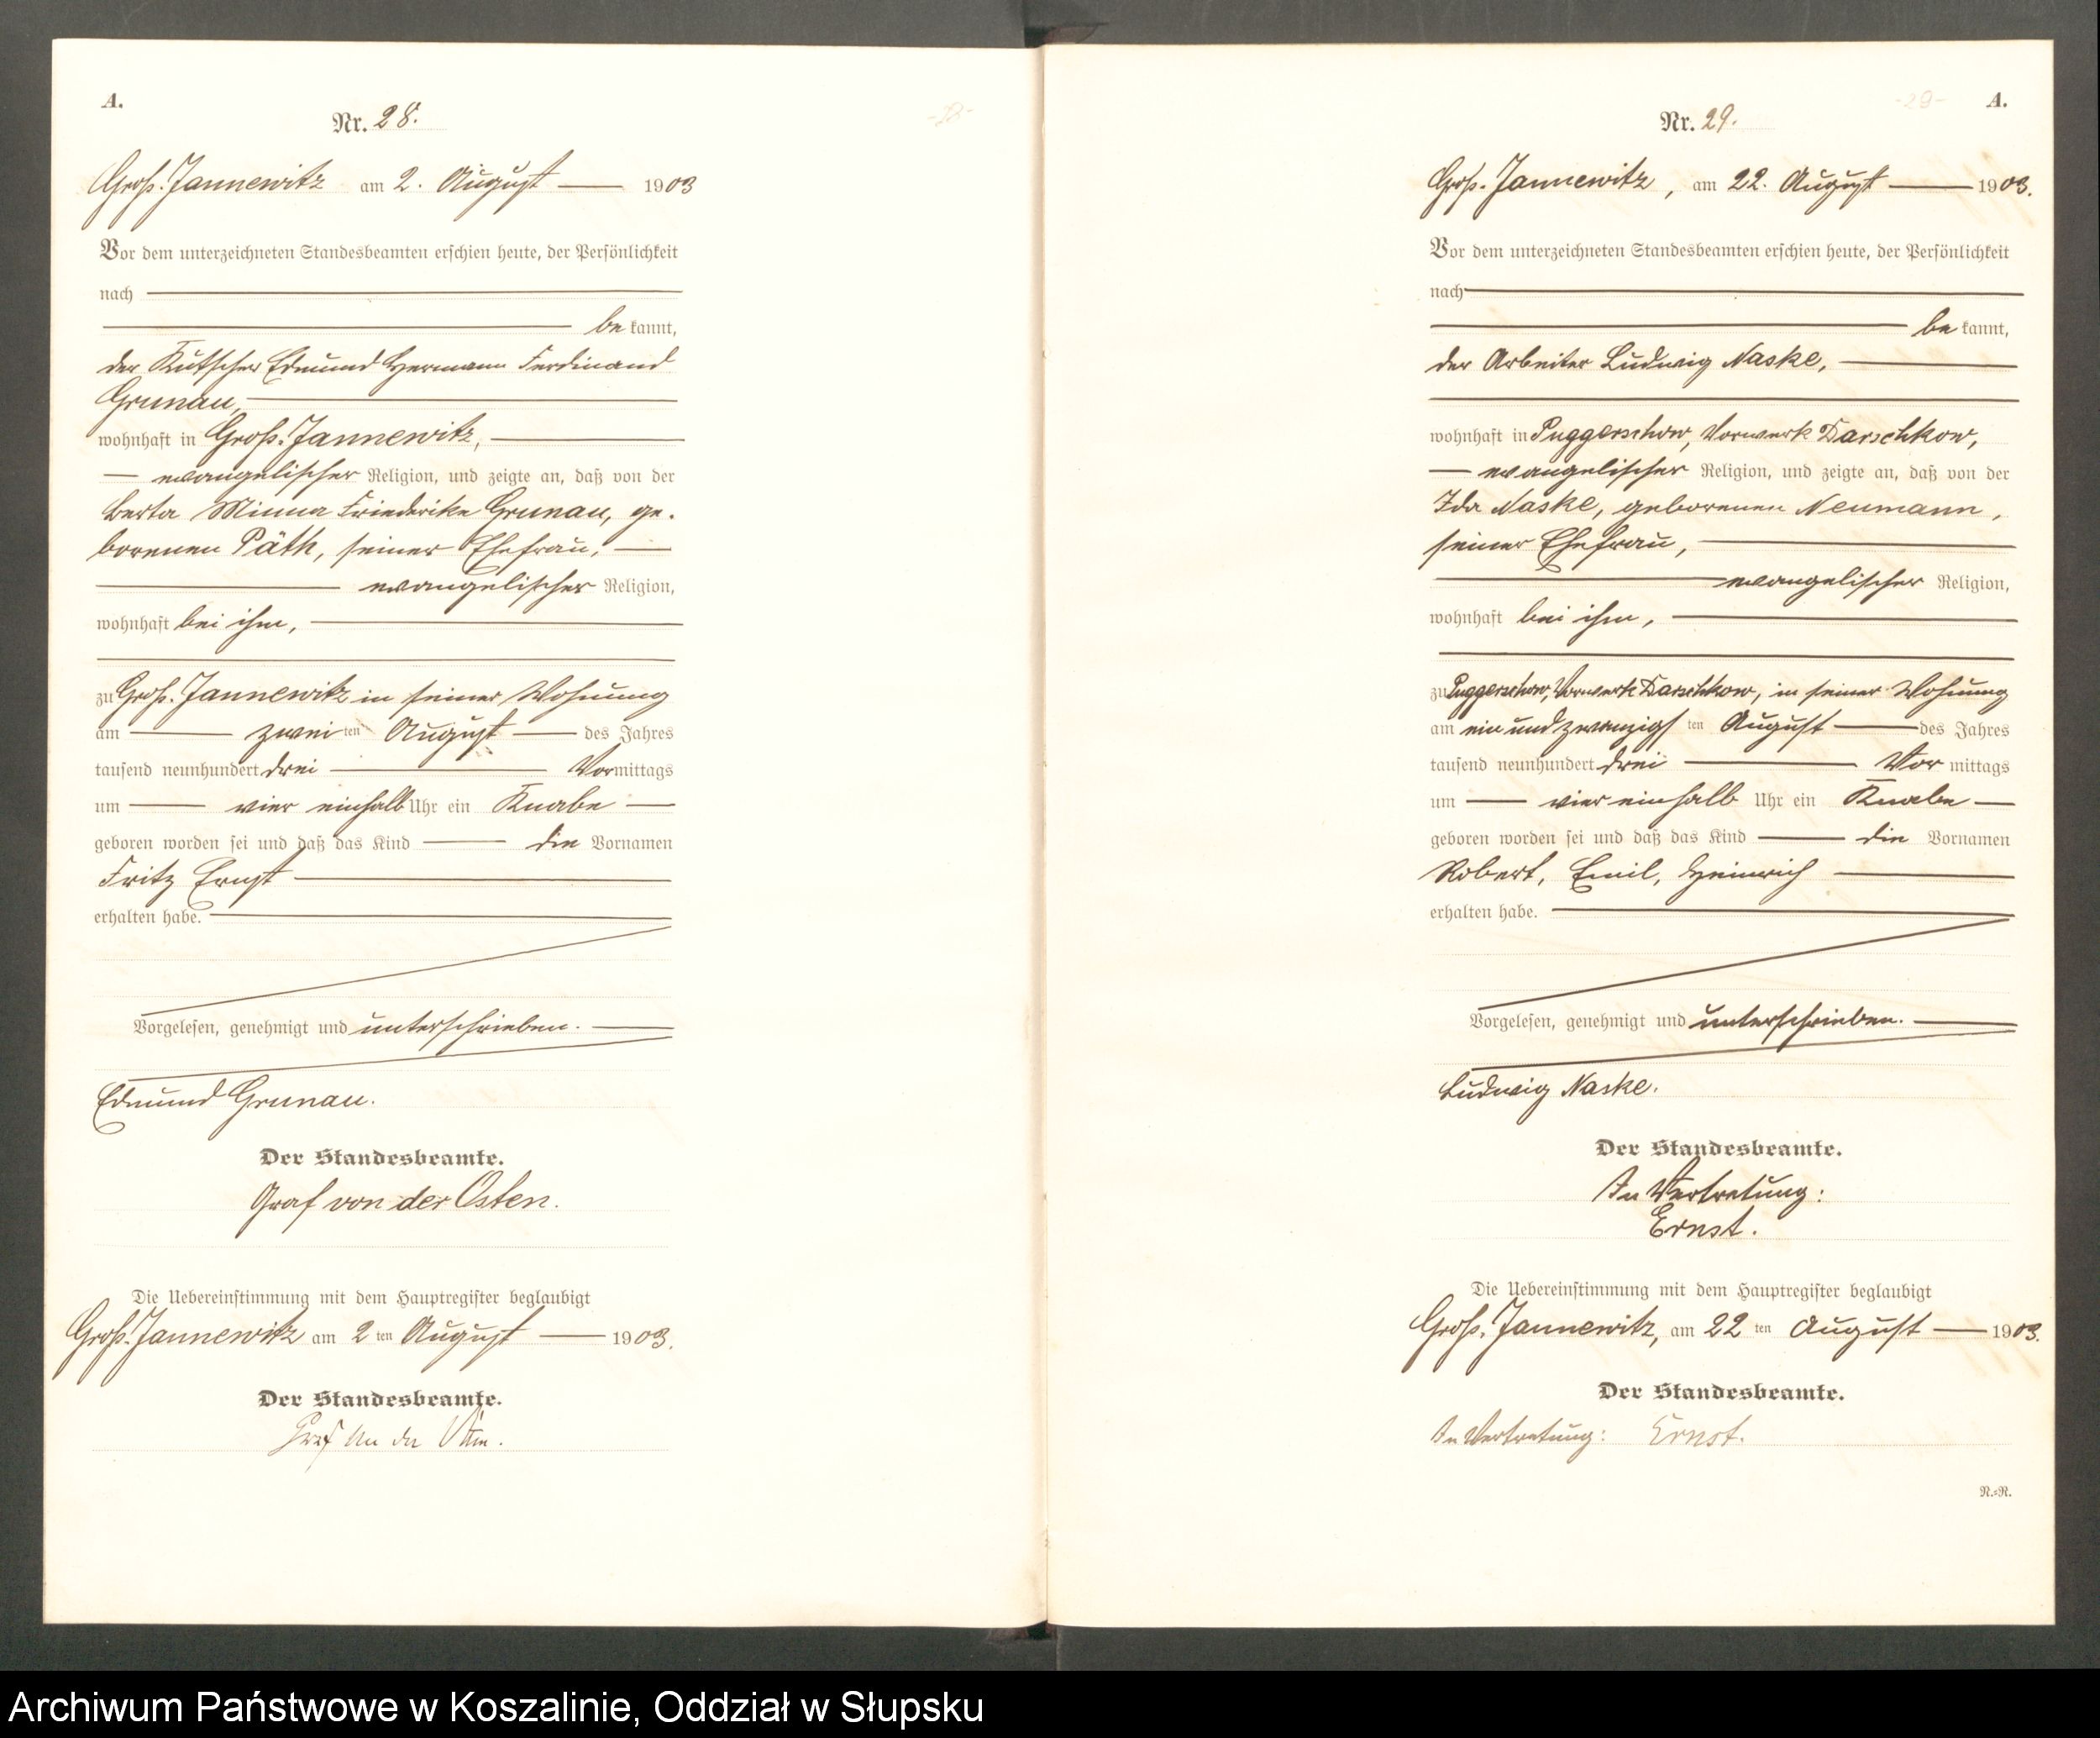 A.
Nr. 28.
Groß-Jannewitz am 2. August 1903
Vor dem unterzeichneten Standesbeamten erschien heute, der Persönlichkeit
nach
be kannt,
der Kutscher Edmund Hermann Ferdinand
Grunau,
wohnhaft in Groß-Jannewitz,
evangelischer Religion, und zeigte an, daß von der
Berta Minna Friederike Grunau, ge-
borenen Päth, seiner Ehefrau,
evangelischer Religion,
wohnhaft bei ihm,
zu Groß-Jannewitz in seiner Wohnung
am zwei ten August des Jahres
tausend neunhundert drei Vormittags
um vier einhalb Uhr ein Knabe
geboren worden sei und daß das Kind die Vornamen
Fritz Ernst
erhalten habe.
Vorgelesen, genehmigt und unterschrieben.
Edmund Grunau.
Der Standesbeamte.
Graf von der Osten.
Die Uebereinstimmung mit dem Hauptregister beglaubigt
Groß-Jannewitz am 2 ten August 1903.
Der Standesbeamte.
Graf von der Osten.
-29- A.
Nr. 29.
Groß-Jannewitz, am 22. August 1903.
Vor dem unterzeichneten Standesbeamten erschien heute, der Persönlichkeit
nach
be kannt,
der Arbeiter Ludwig Naske,
wohnhaft in Puggerschow, Vorwerk Darschkow,
evangelischer Religion, und zeigte an, daß von der
Ida Naske, geborenen Neumann,
seiner Ehefrau,
evangelischer Religion,
wohnhaft bei ihm,
zu Puggerschow, Vorwerk Darschkow, in seiner Wohnung
am ein und zwanzigs ten August des Jahres
tausend neunhundert drei Vor mittags
um vier einhalb Uhr ein Knabe
geboren worden sei und daß das Kind die Vornamen
Robert, Emil, Heinrich
erhalten habe.
Vorgelesen, genehmigt und unterschrieben.
Ludwig Naske.
Der Standesbeamte.
In Vertretung:
Ernst.
Die Uebereinstimmung mit dem Hauptregister beglaubigt
Groß-Jannewitz, am 22 ten August 1903.
Der Standesbeamte.
In Vertretung: Ernst.
N.=R.
Archiwum Państwowe w Koszalinie, Oddział w Słupsku